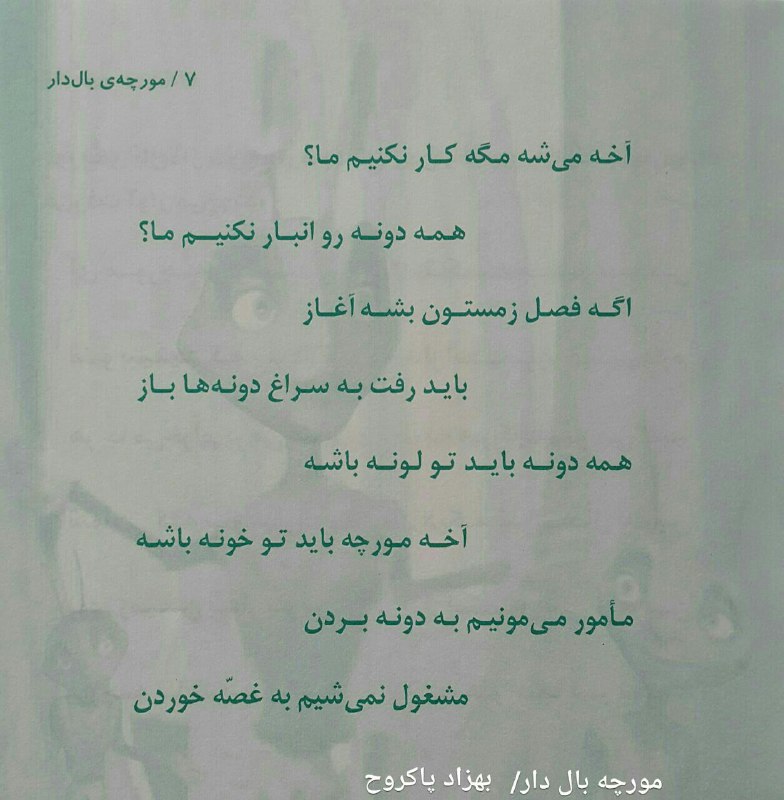 ۷ / مورچه‌ی بال‌دار
آخه می‌شه مگه کار نکنیم ما؟
همه دونه رو انبار نکنیم ما؟
اگه فصل زمستون بشه آغاز
باید رفت به سراغ دونه‌ها باز
همه دونه باید تو لونه باشه
آخه مورچه باید تو خونه باشه
مأمور می‌مونیم به دونه بردن
مشغول نمی‌شیم به غصّه خوردن
مورچه بال دار/ بهزاد پاکروح